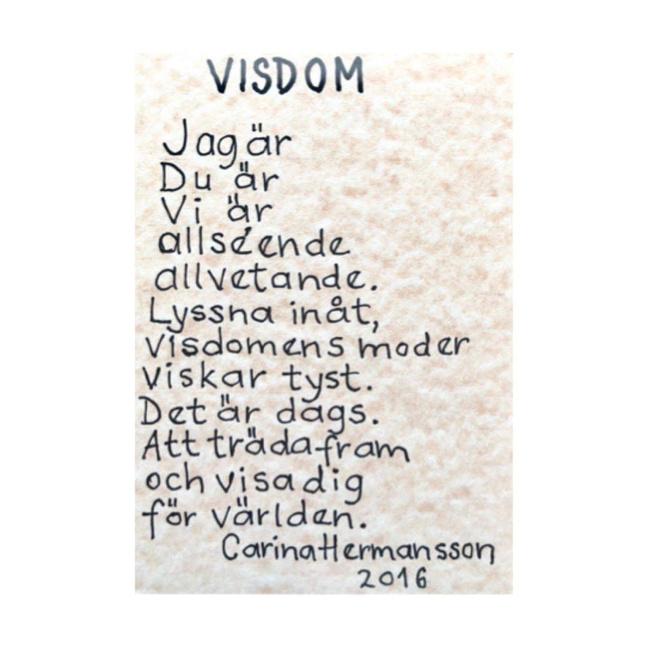 VISDOM
Jag är
Du är
Vi är
allséende
allvetande.
Lyssna inåt,
visdomens moder
viskar tyst.
Det är dags.
Att träda fram
och visa dig
för världen.
Carina Hermansson
2016